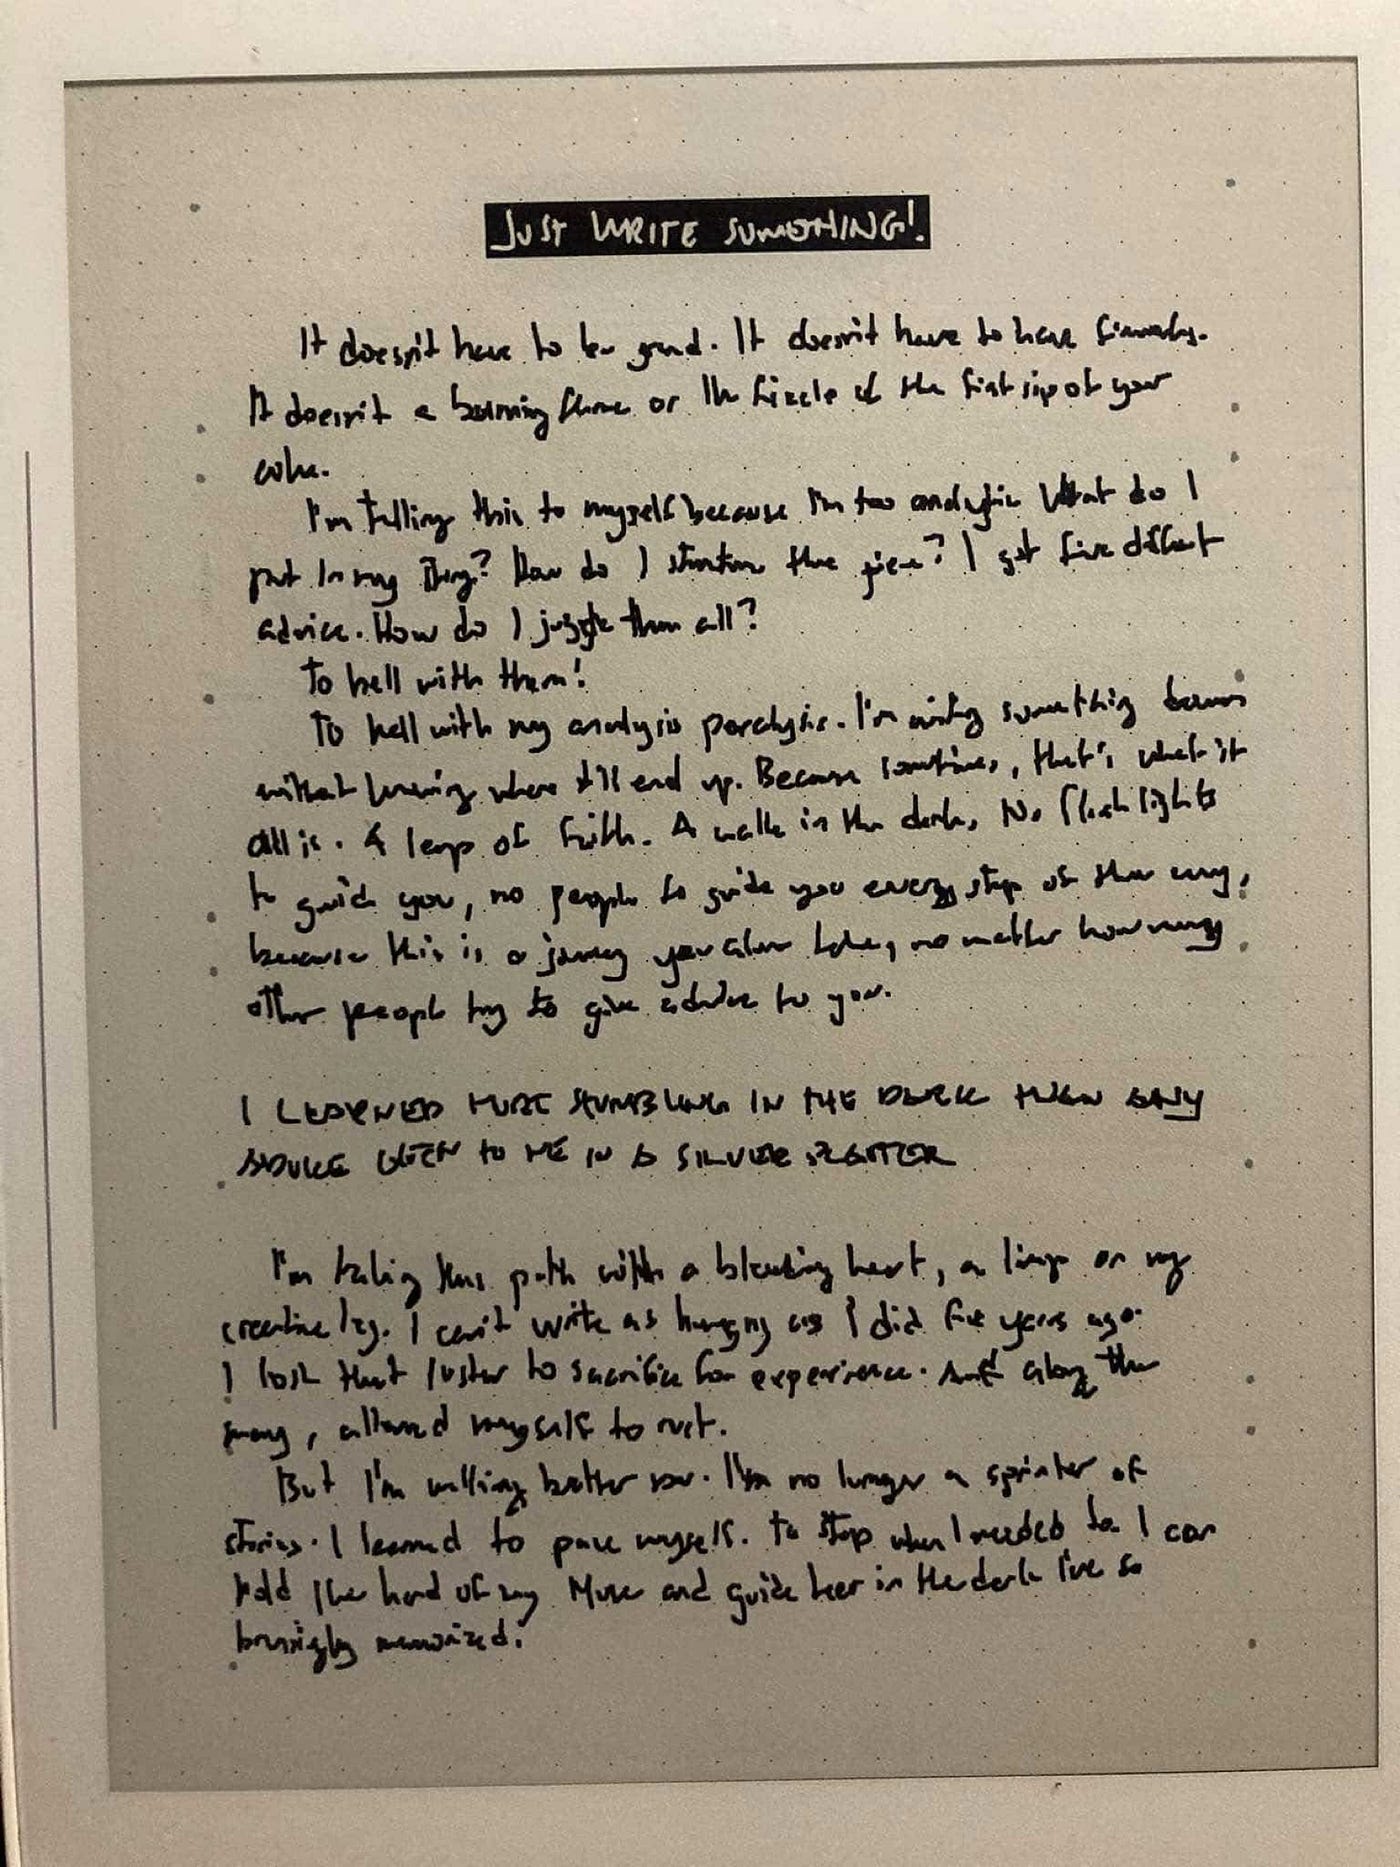 JUST WRITE SUMOTHING!
It doesn't have to be good. It doesn't have to have
It doesn't a burning flame or the fizzle of the first sip of your
coke.
I'm telling this to myself because I'm too analytic What do I
put in my story? How do I structure the piece? I got five different
advice. How do I juggle them all?
To hell with them!
To hell with my analysis paralysis. I'm writing something
without knowing where it'll end up. Because sometimes, that's what it
all is. A leap of faith. A walk in the dark, No flashlights
to guide you, no people to guide you every step of the way,
because this is a journey you alone take, no matter how many
other people try to give advice to you.
I LEARNED MORE STUMBLING IN THE DARK THAN ANY
ADVICE GIVEN TO ME IN A SILVER PLATTER
I'm taking this path with a bleeding heart, a limp on my
creative leg. I can't write as hungry as I did five years ago.
I lost that luster to sacrifice for experience. And along the
way, allowed myself to rust.
But I'm walking better now. I'm no longer a sprinter of
stories. I learned to pace myself. To stop when I needed to. I can
hold the hand of my Muse and guide her in the dark I've so
memorized.